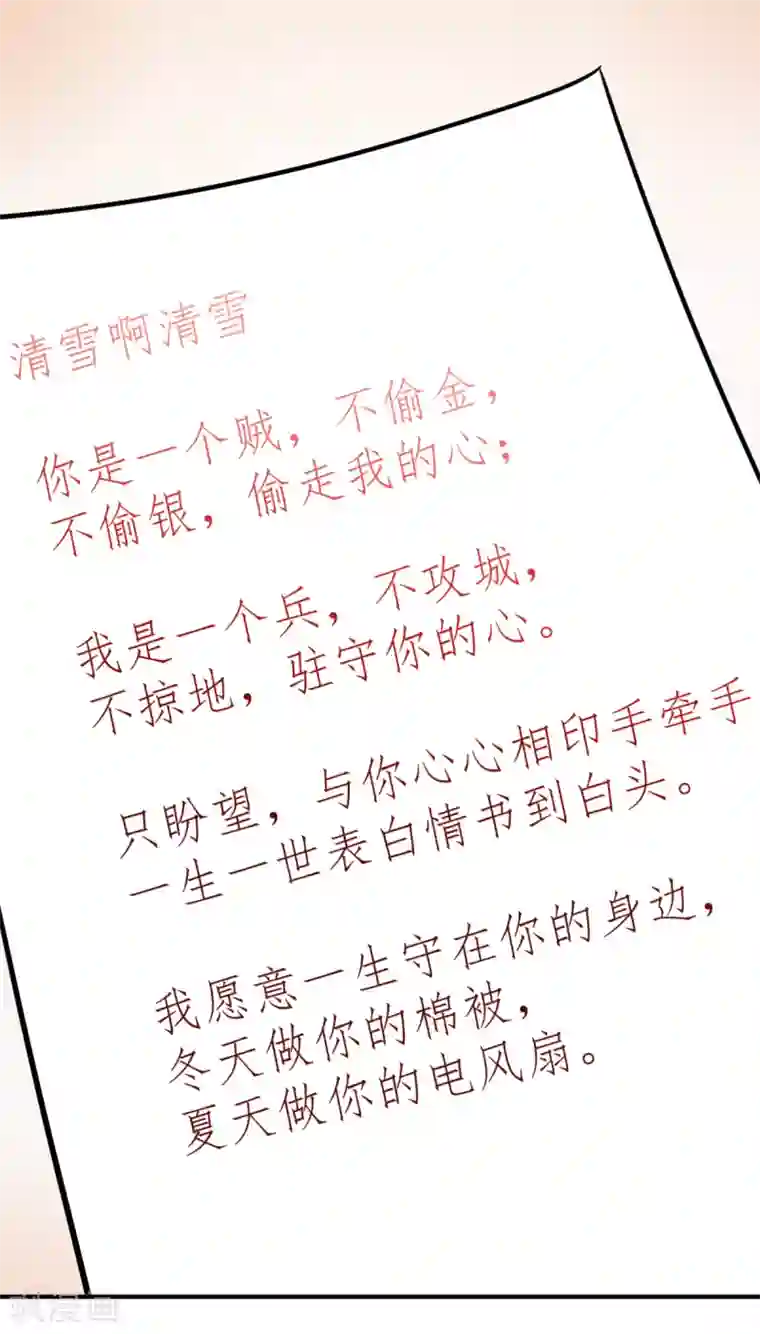 清雪啊清雪
你是一个贼，不偷金，
不偷银，偷走我的心；
我是一个兵，不攻城，
不掠地，驻守你的心。
只盼望，与你心心相印手牵手
一生一世表白情书到白头。
我愿意一生守在你的身边，
冬天做你的棉被，
夏天做你的电风扇。
飒漫画